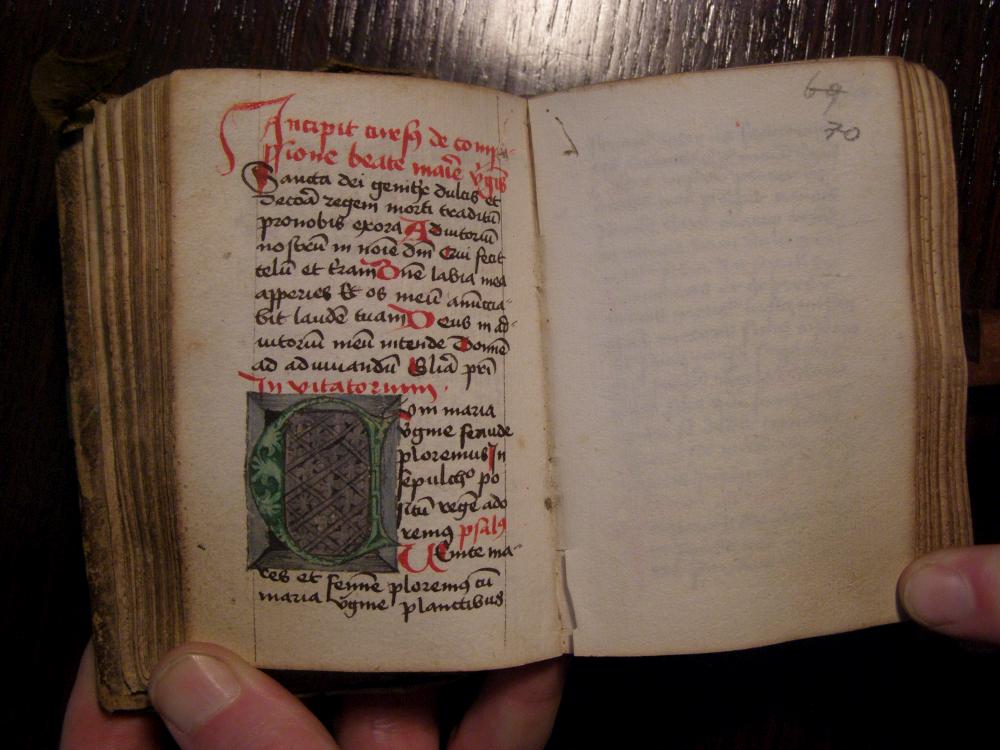 Incipit cursꝫ de compa-
ssione beate marie v̄gīs
Sancta dei genitͥx dulcis et
decoͣ regem morti traditū
pronobis exora Adiutoriū
nostrū in noīe dn̄i Qui fecit
celū et terram Dn̄e labia mea
apperies Et os meū anūccia-
bit laudē tuam Deus in ad-
iutoriū meū intende Domine
ad adiuuandū Glīa pri
Invitatorium
Cum maria
v̄gine
ploremus In
sepulchͦ po
sitū regē ado
remꝰ psalꝰ
Uenite ma-
tres et femīe ploremꝰ cū
maria v̄gine planctibus
69
70